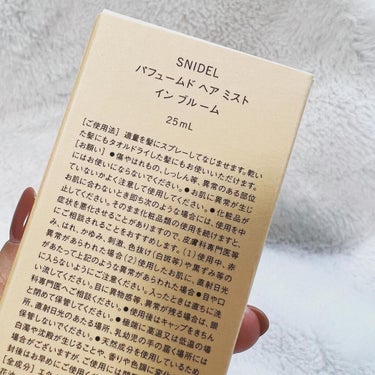 SNIDEL
パフュームド ヘア ミスト
イン ブルーム
25mL
[ご使用法] 適量を髪にスプレーしてなじませます。乾い
た髪にもタオルドライした髪にもお使いいただけます。
[お願い] ●傷やはれもの、しっしん等、異常のある部位
にはお使いにならないでください。●お肌に異常が生じ
ていないかよく注意して使用してください。●化粧品が
お肌に合わないとき即ち次のような場合には、使用を中
止してください。そのまま化粧品類の使用を続けますと、
症状を悪化させることがありますので、皮膚科専門医等
にご相談されることをおすすめします。(1)使用中、赤
み、はれ、かゆみ、刺激、色抜け(白斑等)や黒ずみ等の
異常があらわれた場合(2)使用したお肌に、直射日光
があたって上記のような異常があらわれた場合 ●目や口
に入らないようにご注意ください。入ったときは直ちに洗
い流してください。目に異物感等、異常が残る場合は、眼
科専門医へご相談ください。●使用後はキャップをきちん
と閉めて保管してください。●極端に高温又は低温の場
所、直射日光のあたる場所、乳幼児の手の届く場所には
保管しないでください。●天然成分を使用しているため
白濁や沈殿が生じることや、香りや色調に変化
場合がございますが、使用には問題
封後はお早めにご使用
[全成分]